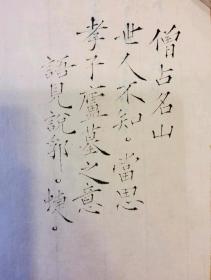 僧占名山
世人不知。當思
孝子廬墓之意
語見說郛。煉。